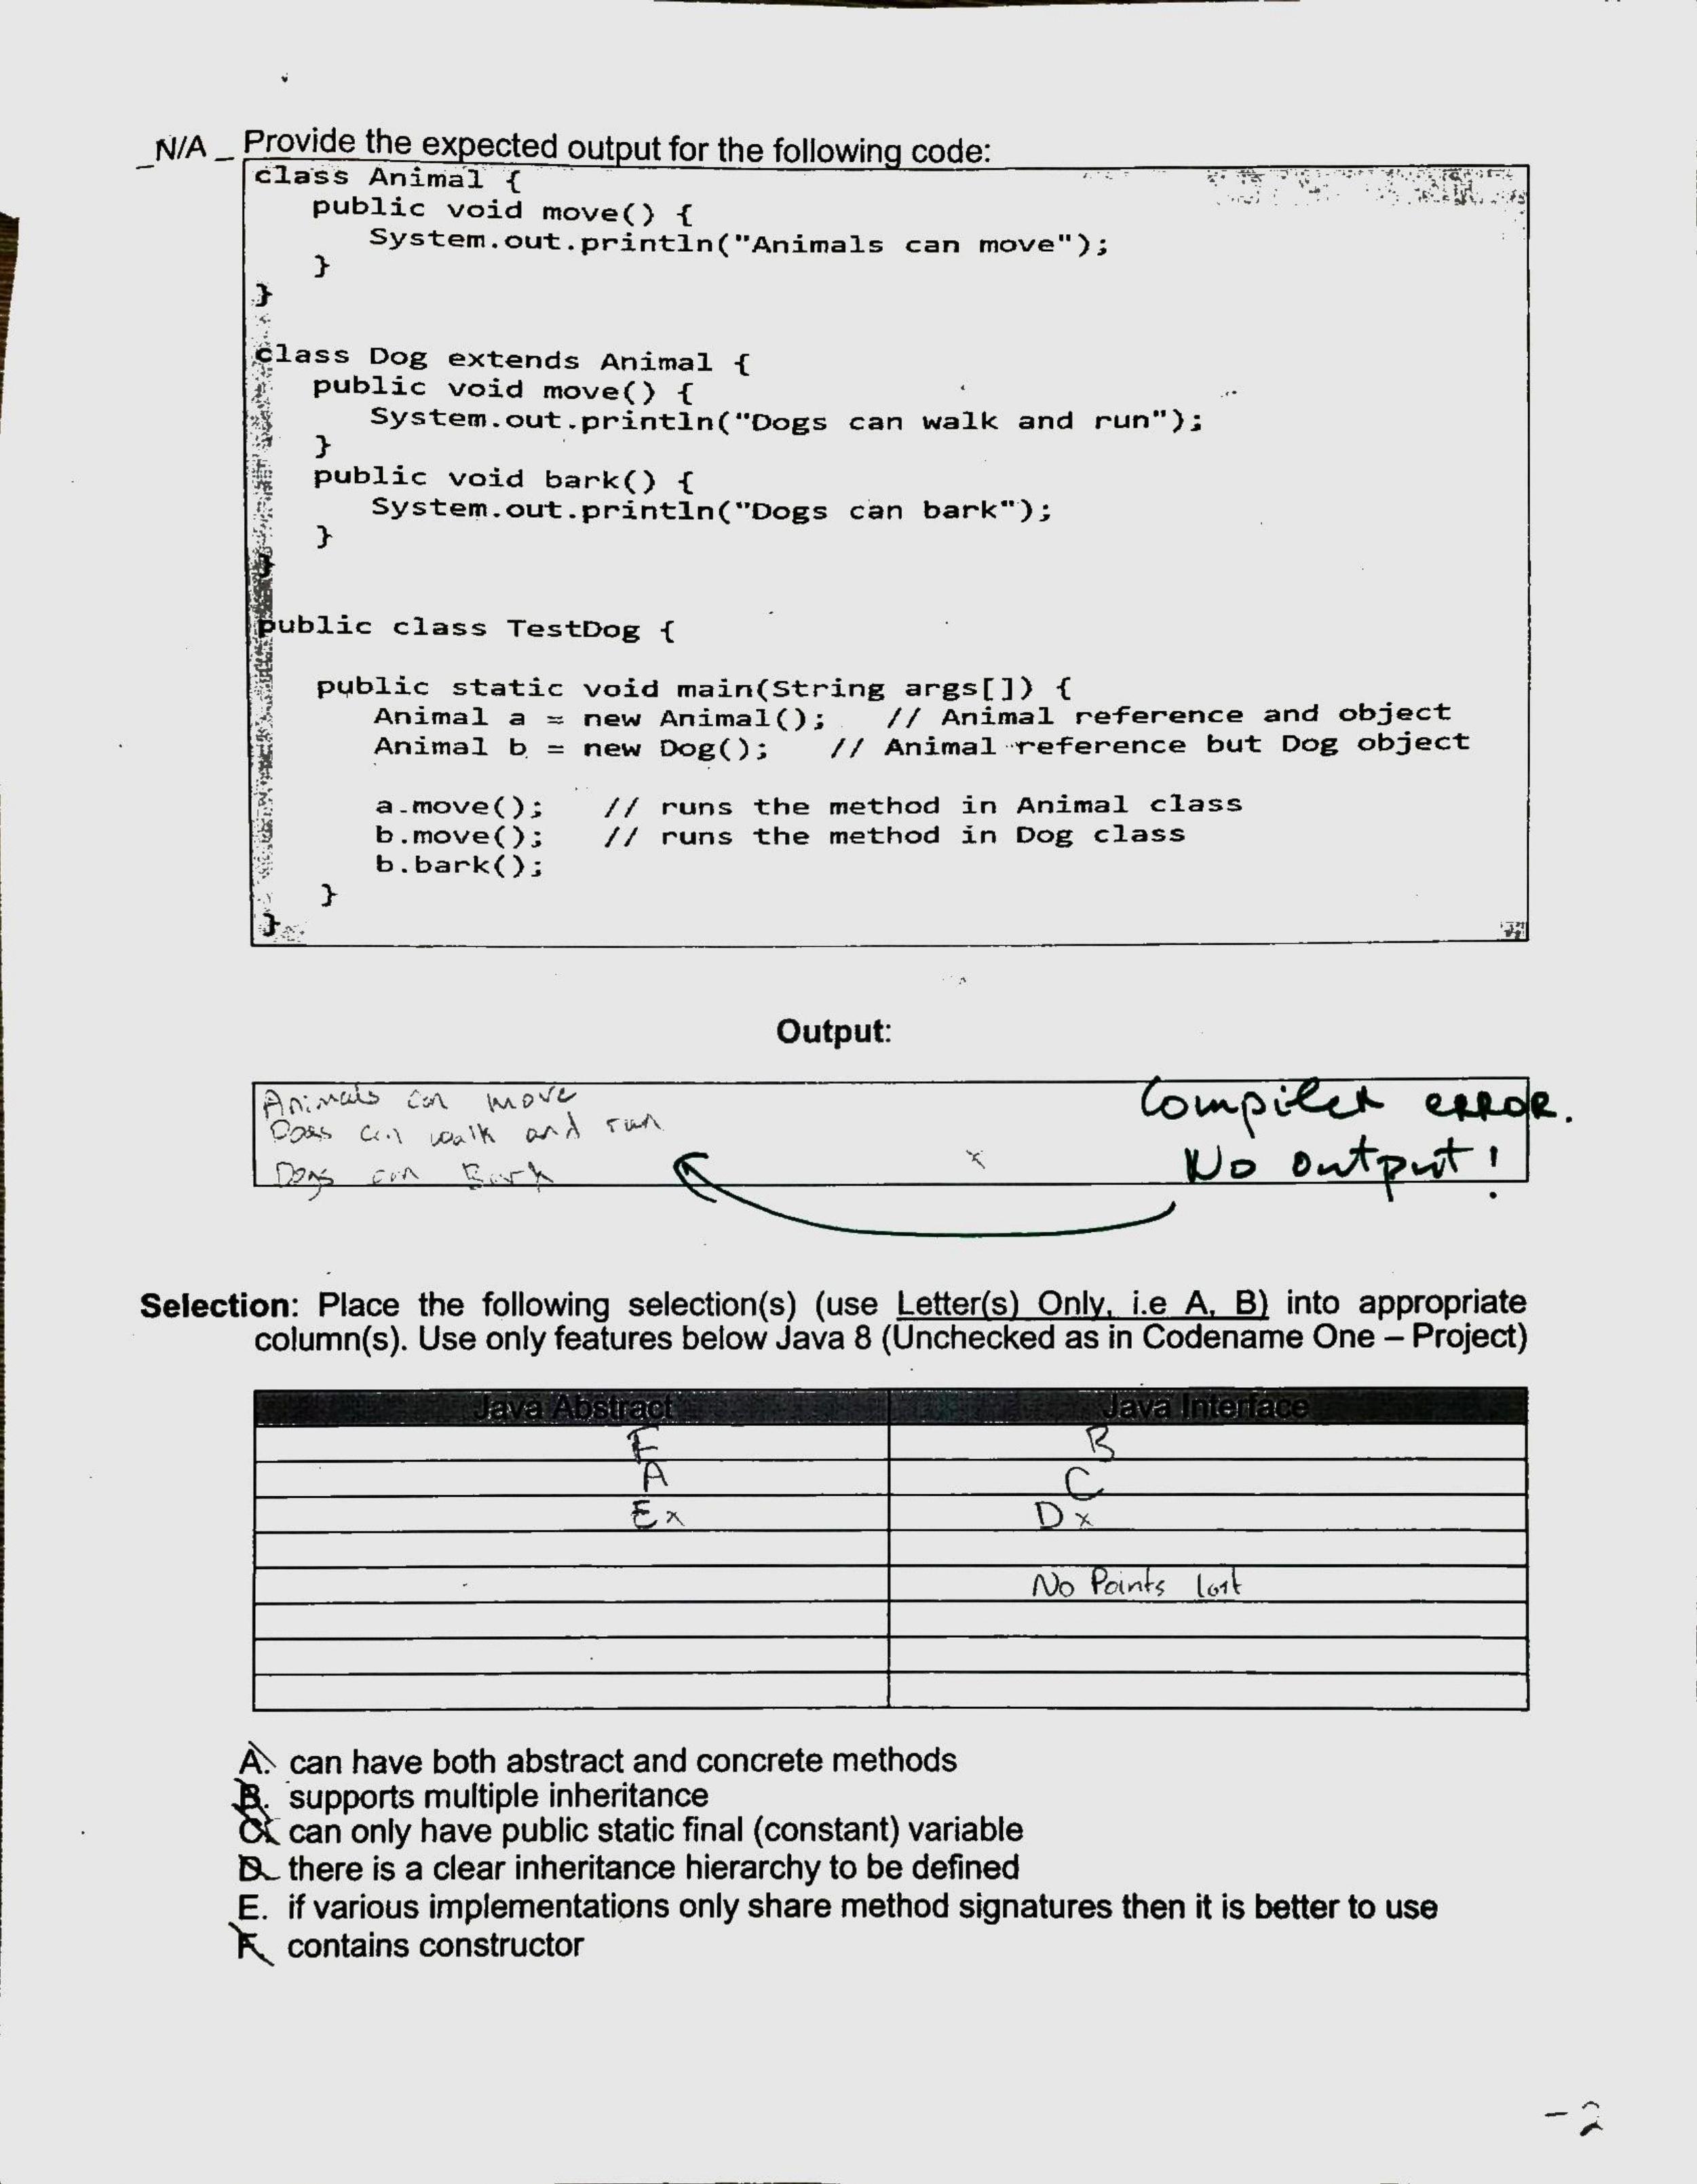 _N/A_ Provide the expected output for the following code:
class Animal {
public void move() {
System.out.println("Animals can move");
}
}
class Dog extends Animal {
public void move() {
System.out.println("Dogs can walk and run");
}
public void bark() {
System.out.println("Dogs can bark");
}
}
public class TestDog {
public static void main(String args[]) {
Animal a = new Animal(); // Animal reference and object
Animal b = new Dog(); // Animal reference but Dog object
a.move(); // runs the method in Animal class
b.move(); // runs the method in Dog class
b.bark();
}
}
Output:
Animals can move
Dogs can walk and run
Dogs can Bark
x
Compiler error.
No output!
Selection: Place the following selection(s) (use Letter(s) Only, i.e A, B) into appropriate
column(s). Use only features below Java 8 (Unchecked as in Codename One – Project)
Java Abstract Java Interface
F B
A C
E x D x
No Points lost
A. can have both abstract and concrete methods
B. supports multiple inheritance
C. can only have public static final (constant) variable
D. there is a clear inheritance hierarchy to be defined
E. if various implementations only share method signatures then it is better to use
F. contains constructor
-2